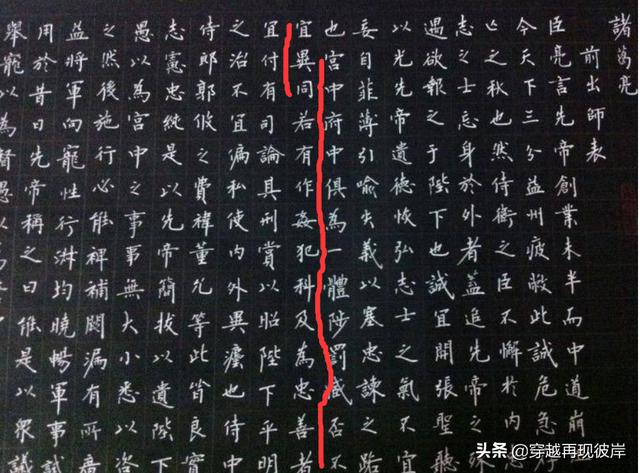 諸葛亮
前出師表
臣亮言先帝創業未半而中道崩
今天下三分益州疲敝此誠危急
亡之秋也然侍衛之臣不懈於內
志之士忘身於外者蓋追先帝之殊
遇欲報之于陛下也誠宜開張聖聽
以光先帝遺德恢弘志士之氣不宜
妄自菲薄引喻失義以塞忠諫之路
也宮中府中俱為一體陟罰臧否不
宜異同若有作姦犯科及為忠善者
宜付有司論其刑賞以昭陛下平明
之治不宜偏私使內外異灋也侍中
侍郎郭攸之費禕董允等此皆良實
志慮忠純是以先帝簡拔以遺陛下
愚以為宮中之事事無大小悉以咨
之然後施行必能裨補闕漏有所廣
益將軍向寵性行淑均曉暢軍事試
用於昔日先帝稱之曰能是以眾議
舉寵以為督愚以為
头条 @穿越再现彼岸